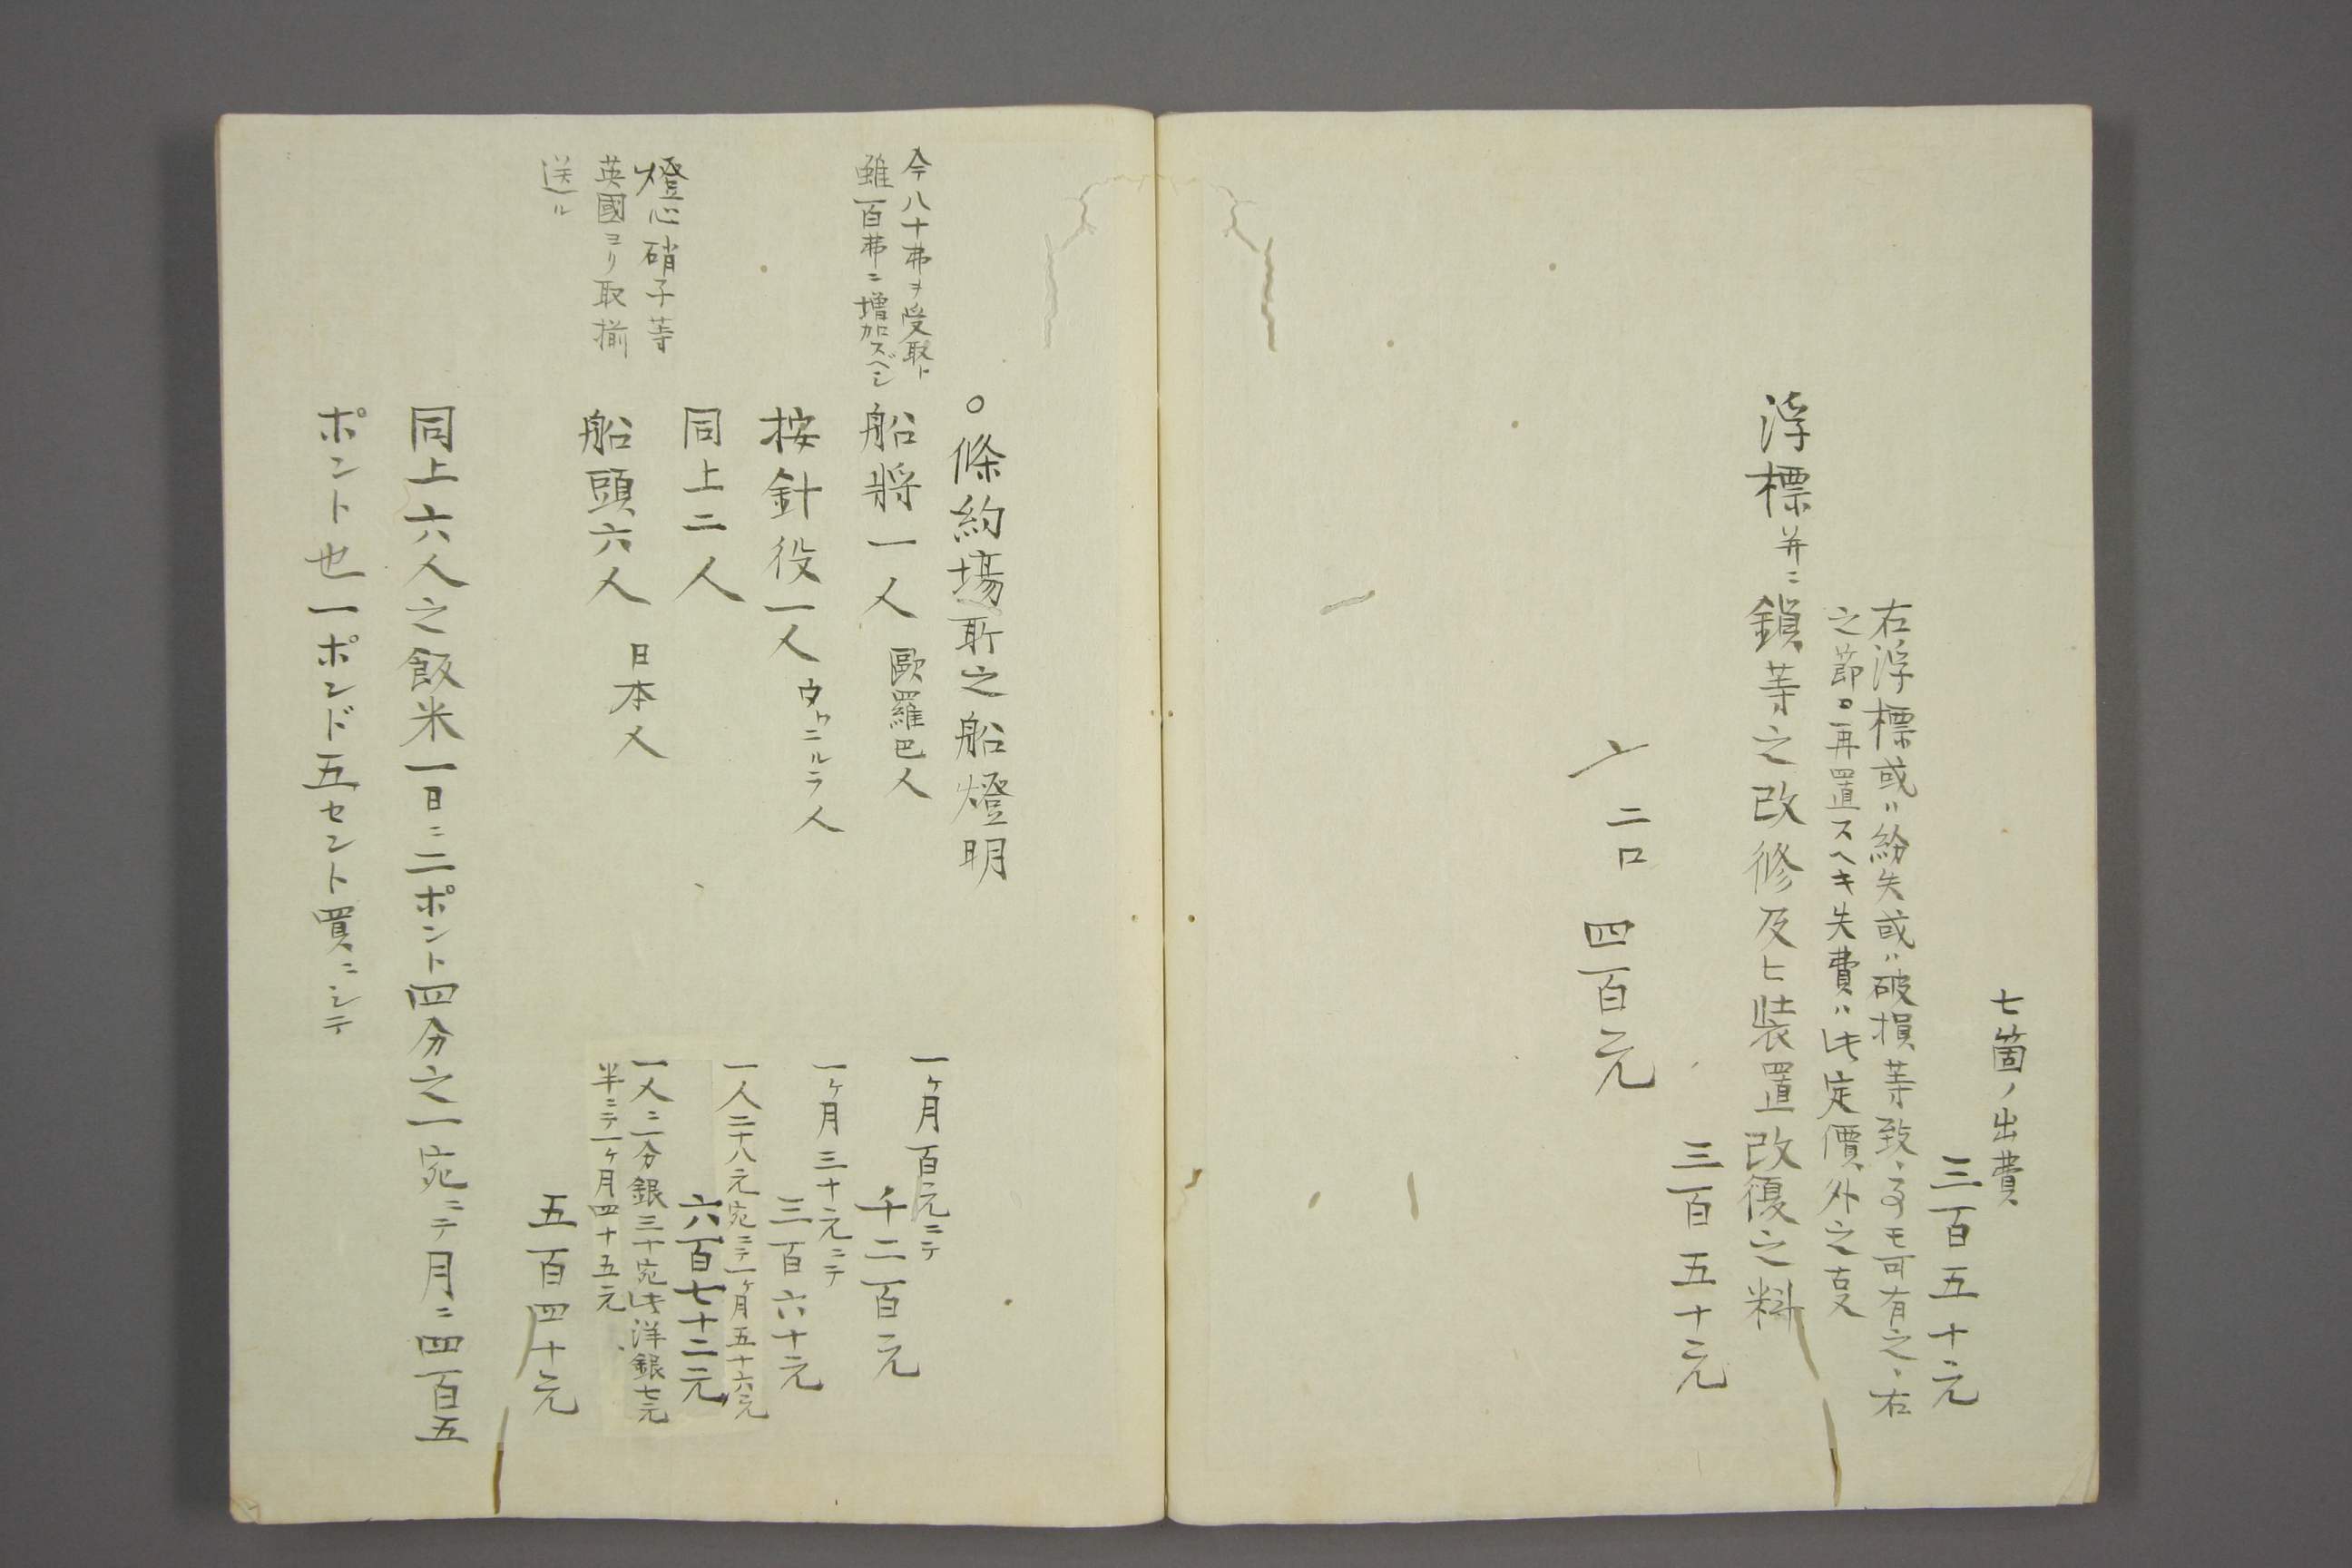 七箇ノ出費
三百五十元
右浮標或ハ紛失或ハ破損等致ヿモ可有之、右
之節。再置スヘキ失費ハ此定價外之叓
浮標并ニ鎖等之改修及ヒ裝置改復之料
三百五十元
〆二口 四百元
○條約場所之船燈明
今八十弗ヲ受取ト
雖一百弗ニ増加スベシ
船將一人 歐羅巴人
一ヶ月百元ニテ
千二百元
按針役一人
一ヶ月三十元ニテ
三百六十元
同上二人
一人二十八元宛ニテ一ヶ月五十六元
六百七十二元
燈心硝子等
英國ヨリ取揃
送ル
船頭六人 日本人
一人ニ二分銀三十宛此洋銀七元
半ニテ一ヶ月四十五元
五百四十元
同上六人之飯米一日ニ二ポント四分之一宛ニテ月ニ四百五
ポント也一ポンド五セント買ニシテ